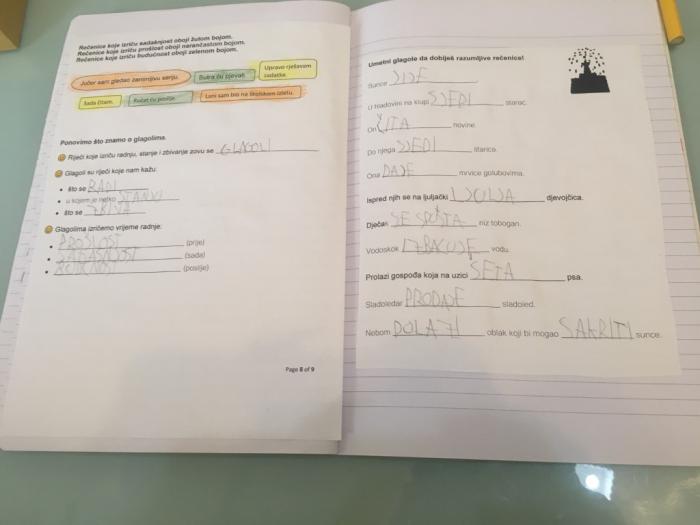 Rečenice koje izriču sadašnjost oboji žutom bojom.
Rečenice koje izriču prošlost oboji narančastom bojom.
Rečenice koje izriču budućnost oboji zelenom bojom.
Jučer sam gledao zanimljivu seriju.
Sutra ću pjevati.
Upravo rješavam
zadatke.
Sada čitam.
Ručat ću poslije.
Lani sam bio na školskom izletu.
Ponovimo što znamo o glagolima.
Riječi koje izriču radnju, stanje i zbivanje zovu se GLAGOLI
Glagoli su riječi koje nam kažu:
• što se RADI
• u kojem je netko STANJU
• što se ZBIVA
Glagolima izričemo vrijeme radnje:
• PROŠLOST (prije)
• SADAŠNJOST (sada)
• (poslije)
Page 8 of 9
Umetni glagole da dobiješ razumljive rečenice!
Sunce SIJE
U hladovini na klupi SJEDI starac.
On ČITA novine.
Do njega SJEDI starica.
Ona DAJE mrvice golubovima.
Ispred njih se na ljuljački djevojčica.
Dječak SE SPUŠTA niz tobogan.
Vodoskok IZBACUJE vodu.
Prolazi gospođa koja na uzici ŠETA psa.
Sladoledar PRODAJE sladoled.
Nebom DOLAZI oblak koji bi mogao SAKRITI sunce.